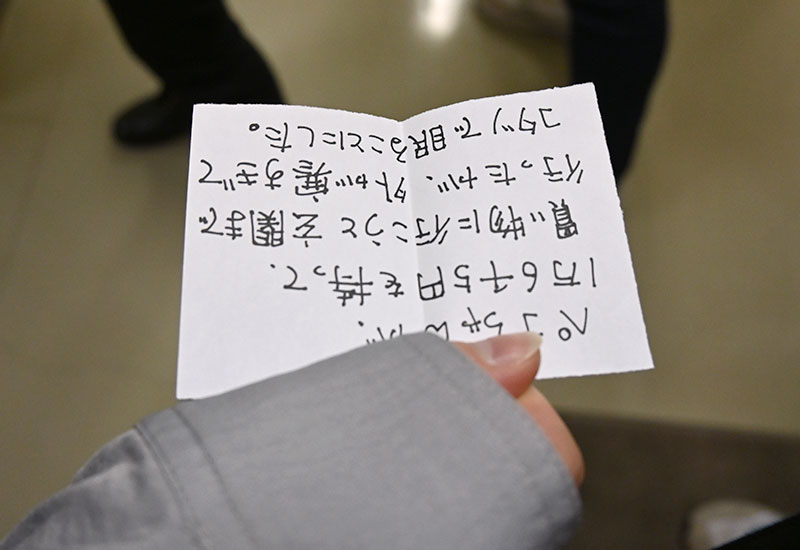 ペコちゃんが、
1万6千5円を持って、
買い物に行こうと玄関まで
行ったが、外が寒すぎて
コタツで眠ることにした。